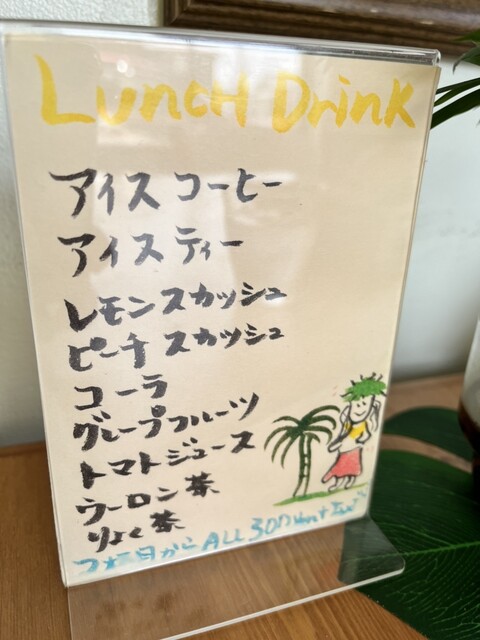 LUNCH Drink
アイス コーヒー
アイス ティー
レモンスカッシュ
ピーチ スカッシュ
コーラ
グレープフルーツ
トマトジュース
ウーロン茶
りょく茶
2杯目から ALL 300